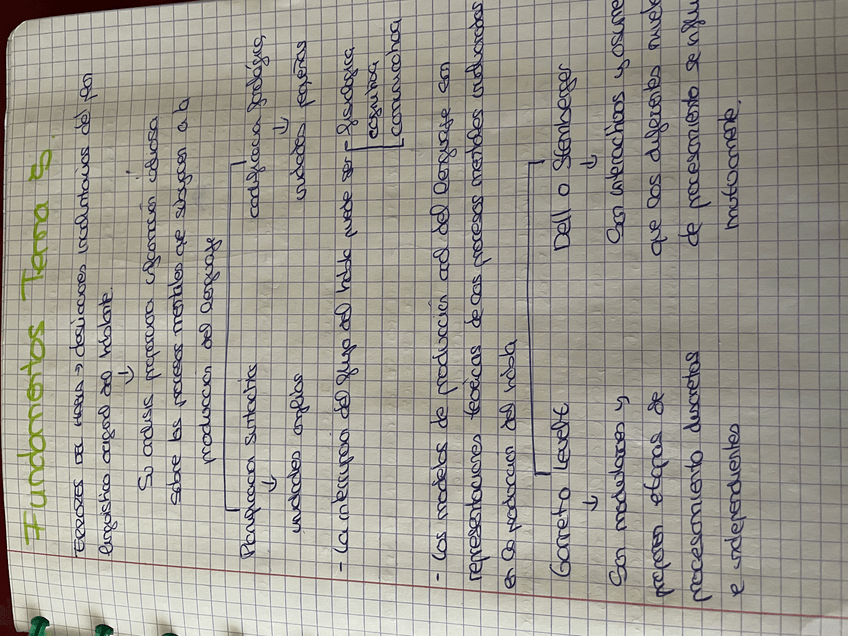 Fundamentos Tema 5.
Errores de habla → desviaciones involuntarias del plan
lingüístico original del hablante.
↓
Su análisis proporciona información valiosa
sobre los procesos mentales que subyacen a la
producción del lenguaje
Planificación sintáctica
↓
unidades amplias
codificación fonológica,
↓
unidades pequeñas
- La interrupción del flujo del habla puede ser - fisiológica
cognitiva
comunicativa
- Los modelos de producción oral del lenguaje son
representaciones teóricas de los procesos mentales involucrados
en la producción del habla
Garret o Levelt
↓
Son modulares y
proponen etapas de
procesamiento discretas
e independientes
Dell o Stemberger
↓
Son interactivos y asume
que los diferentes nivele
de procesamiento se influ
mutuamente.